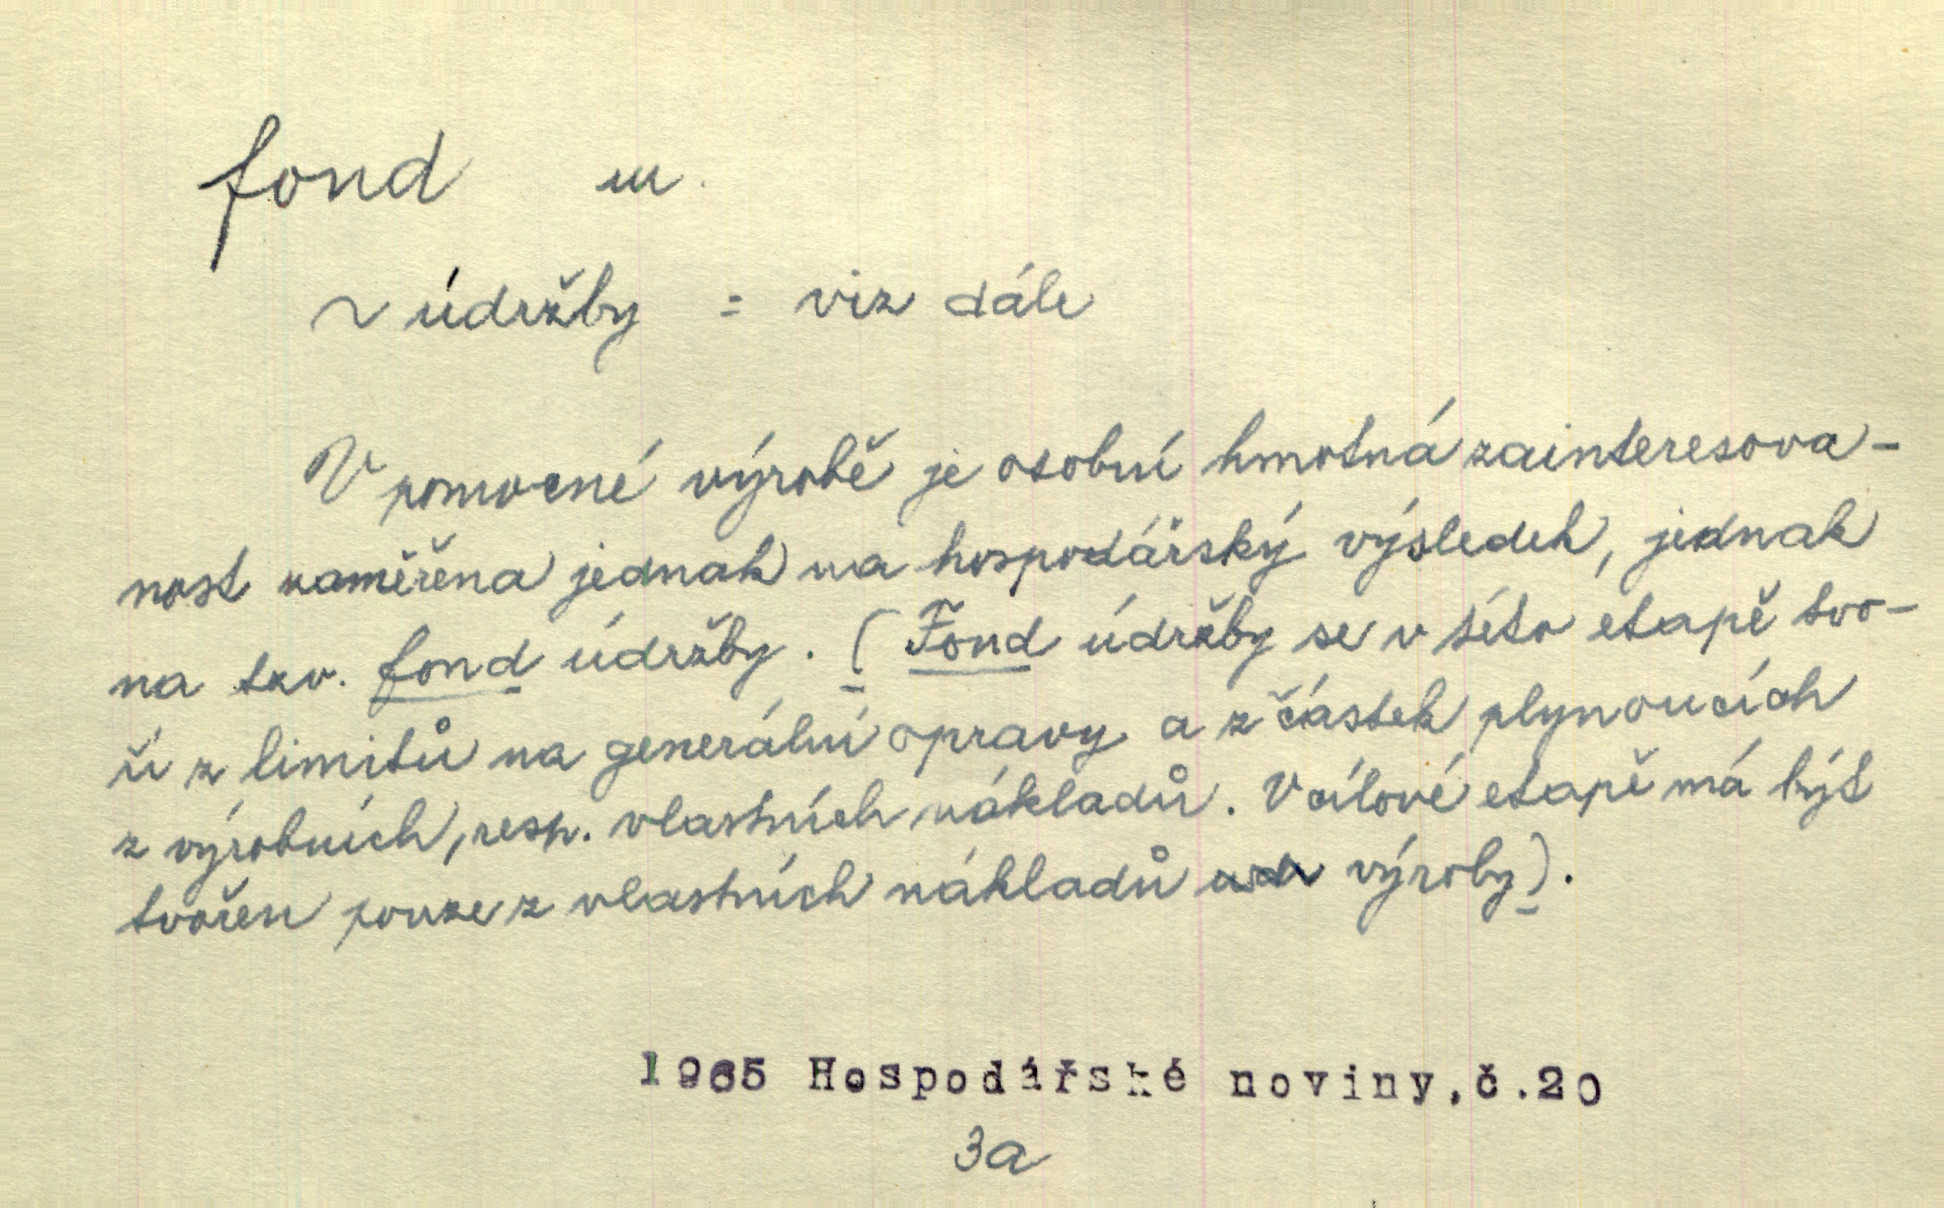 fond m.
~ údržby = viz dále
V pomocné výrobě je osobní hmotná zainteresova-
nost zaměřena jednak na hospodářský výsledek, jednak
na tzv. fond údržby. (Fond údržby se v této etapě tvo-
ří z limitů na generální opravy a z částek plynoucích
z výrobních, resp. vlastních nákladů. V cílové etapě má být
tvořen pouze z vlastních nákladů výroby).
1965 Hospodářské noviny, č.20
3a